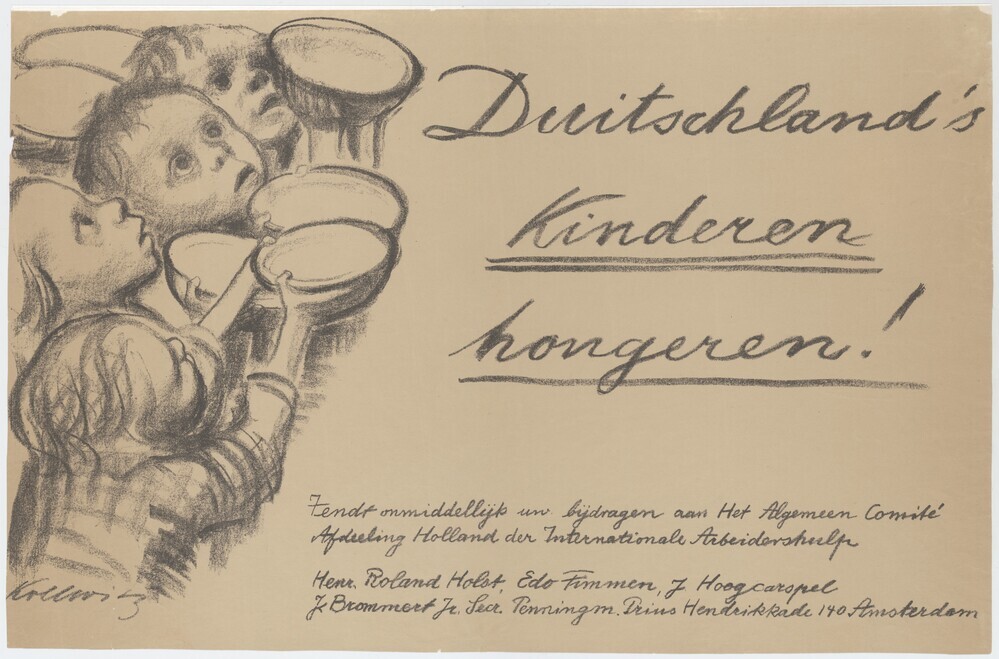 Duitschland's
Kinderen
hongeren!
Zendt onmiddellijk uw bijdragen aan Het Algemeen Comité
Afdeeling Holland der Internationale Arbeidershulp
Henr. Roland Holst, Edo Fimmen, J Hoogcarspel
J. Brommert Jr. Secr. Penningm. Prins Hendrikkade 140 Amsterdam
Kollwitz